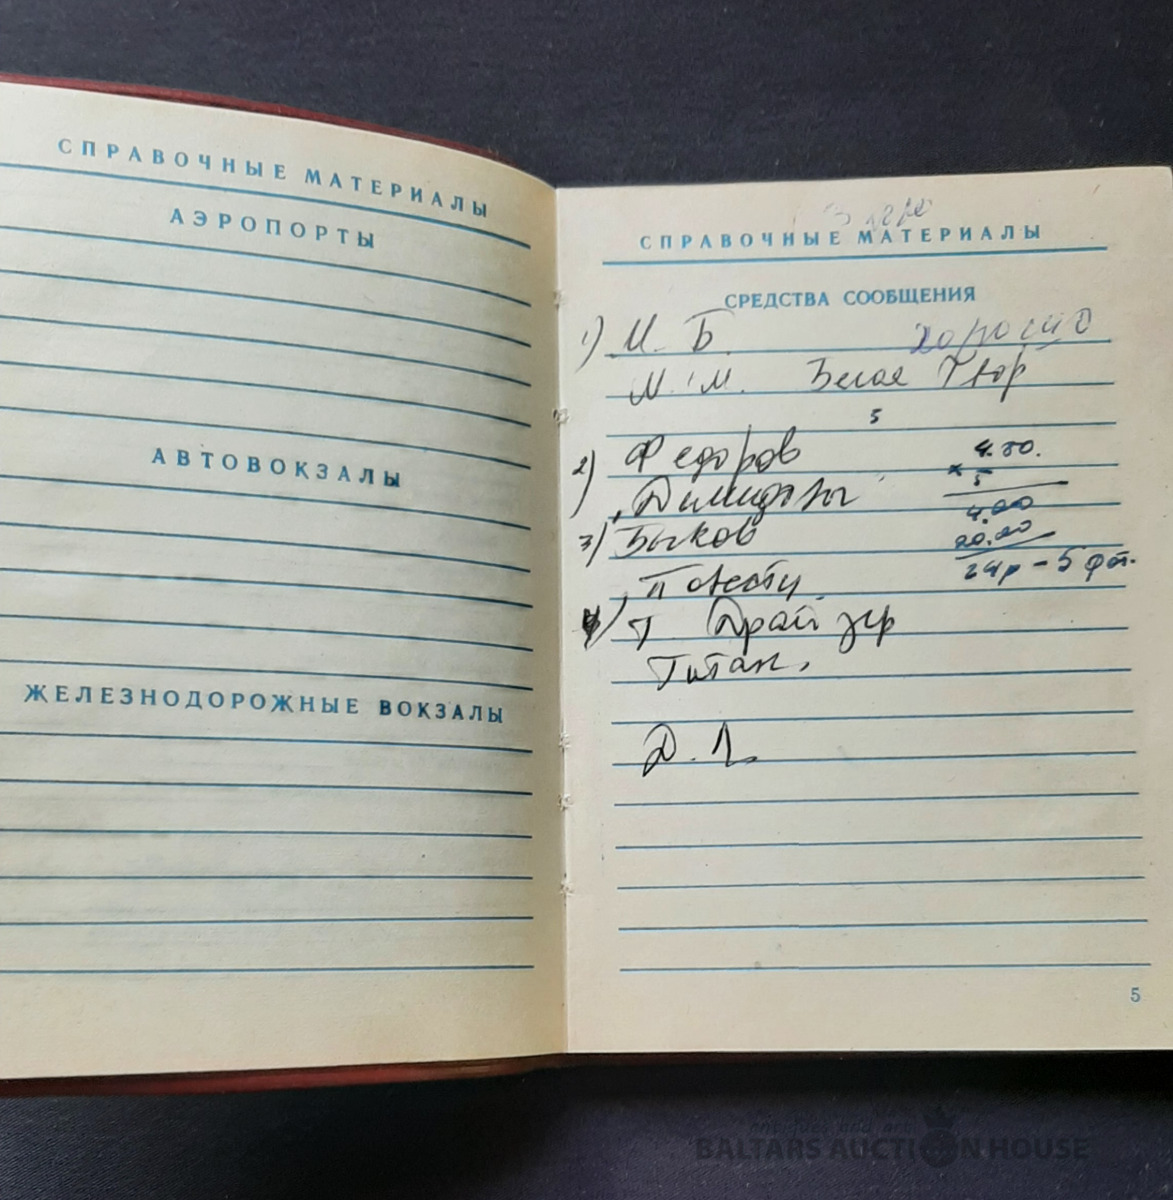 СПРАВОЧНЫЕ МАТЕРИАЛЫ
АЭРОПОРТЫ
АВТОВОКЗАЛЫ
ЖЕЛЕЗНОДОРОЖНЫЕ ВОКЗАЛЫ
СПРАВОЧНЫЕ МАТЕРИАЛЫ
СРЕДСТВА СООБЩЕНИЯ
1) М. Б. хорошо
М. М. Белая
5
2) Федоров 4.80.
× 5
3) Быков 4.00
20.00
Повести. 24р - 5 фт.
4) Т Драйзер
Титан.
Д. Л.
5
BALTARS AUCTION HOUSE